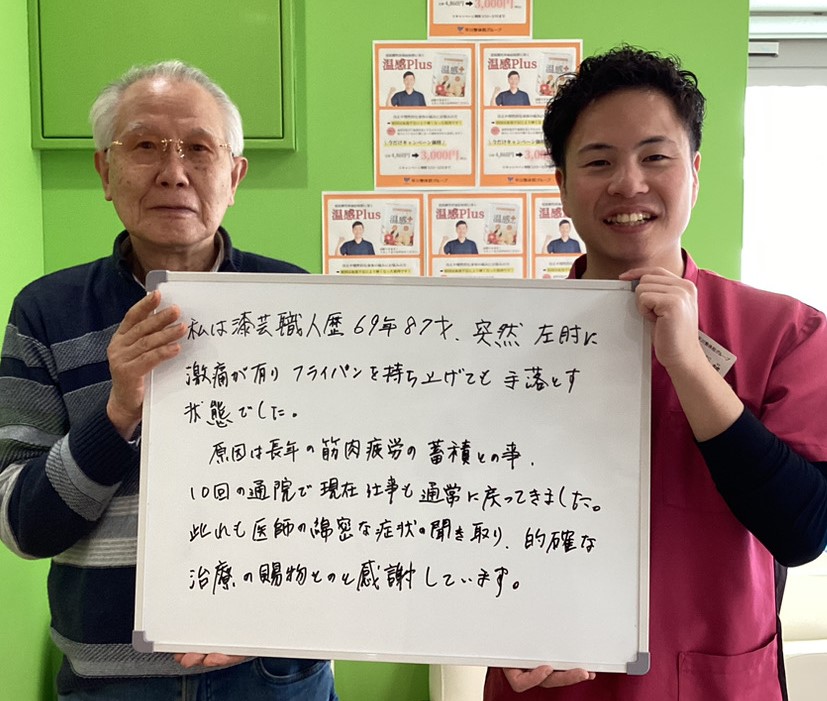 4,860円➡3,000円
温感Plus
温感Plus
4,860円➡3,000円
4,860円➡3,000円
温感Plus
温感Plus
温感
私は漆芸職人歴69年87才、突然左肘に
激痛が有りフライパンを持ち上げても手落とす
状態でした。
原因は長年の筋肉疲労の蓄積との事、
10回の通院で現在仕事も通常に戻ってきました。
此れも医師の綿密な症状の聞き取り、的確な
治療の賜物とのと感謝しています。